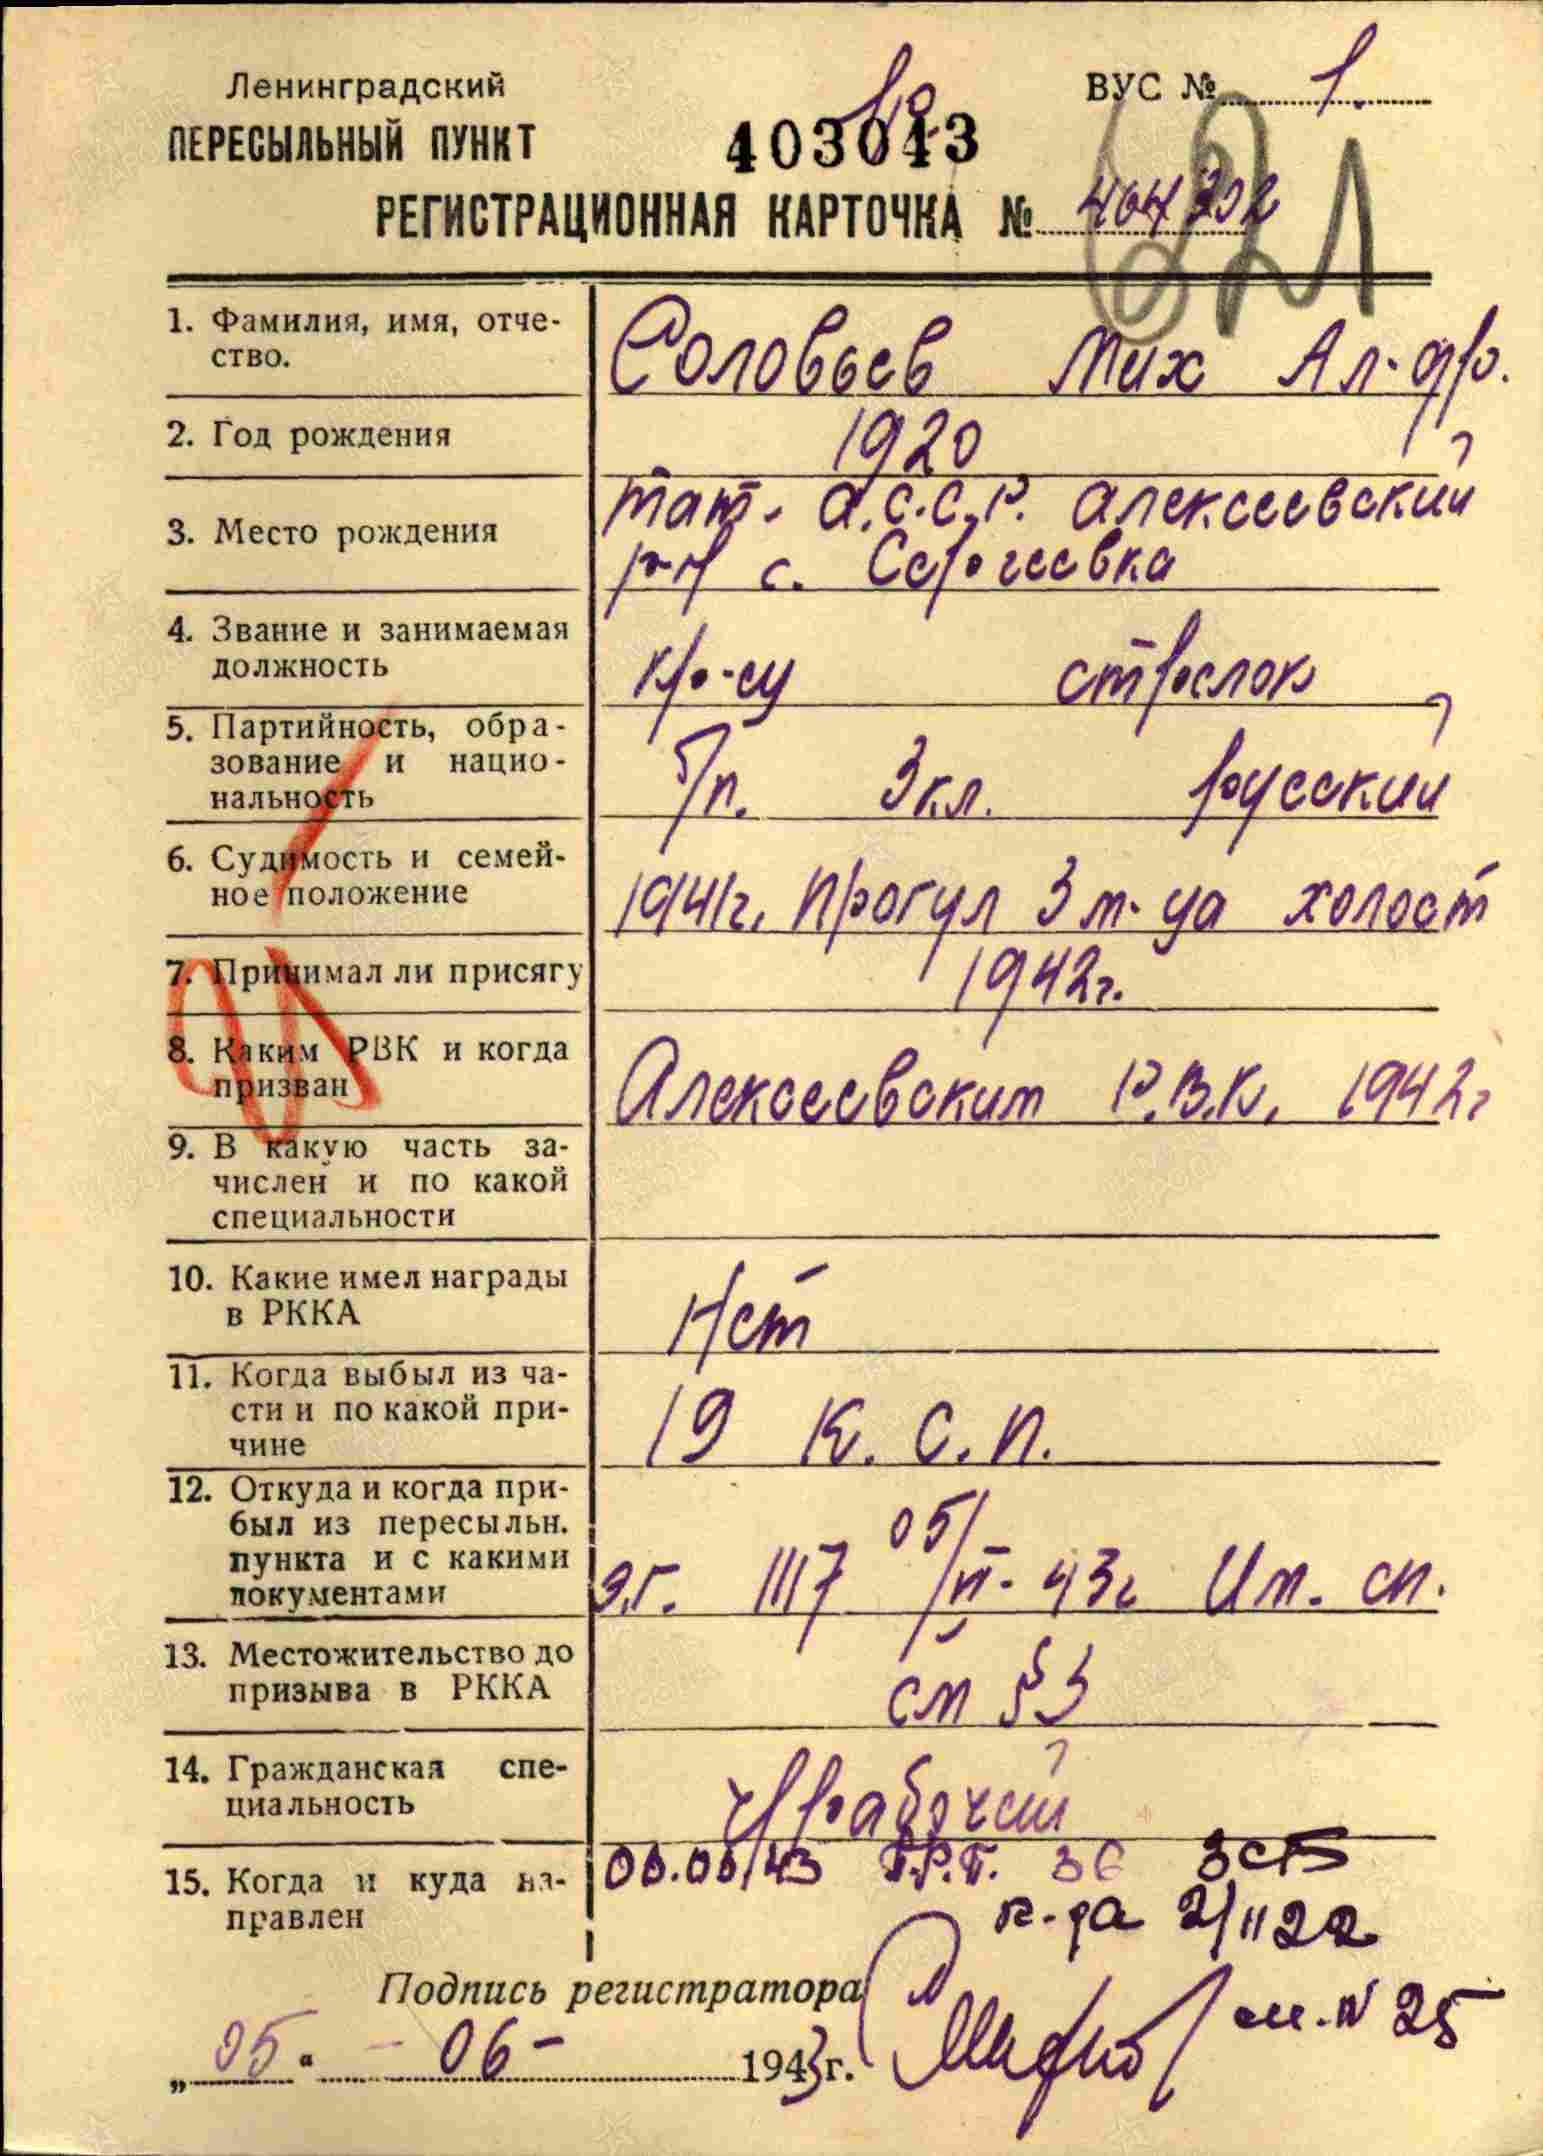 Ленинградский
ПЕРЕСЫЛЬНЫЙ ПУНКТ
ВУС № 1.
403013
РЕГИСТРАЦИОННАЯ КАРТОЧКА №
1. Фамилия, имя, отче-
ство.
Соловьев Мих Ал-др.
2. Год рождения
1920
3. Место рождения
тат. а.с.с.р. алексеевский
р-н с. Сергеевка
4. Звание и занимаемая
должность
кр-ец стрелок
5. Партийность, обра-
зование и нацио-
нальность
б/п. 3 кл. русский
6. Судимость и семей-
ное положение
1941г. прогул 3 м-ца холост
7. Принимал ли присягу
1942г.
8. Каким РВК и когда
призван
Алексеевским Р.В.К. 1942г
9. В какую часть за-
числен и по какой
специальности
10. Какие имел награды
в РККА
Нет
11. Когда выбыл из ча-
сти и по какой при-
чине
19 К. С. П.
12. Откуда и когда при-
был из пересыльн.
пункта и с какими
документами
Э.Г. 1117 05/VI-43г Им. сп.
13. Местожительство до
призыва в РККА
см § 3
14. Гражданская спе-
циальность
ч/рабочий
15. Когда и куда на-
правлен
06.06.43 36 ЗСП
к-да 2/1122
Подпись регистратора
№ 25
„ 05 “ - 06 - 1943 г.